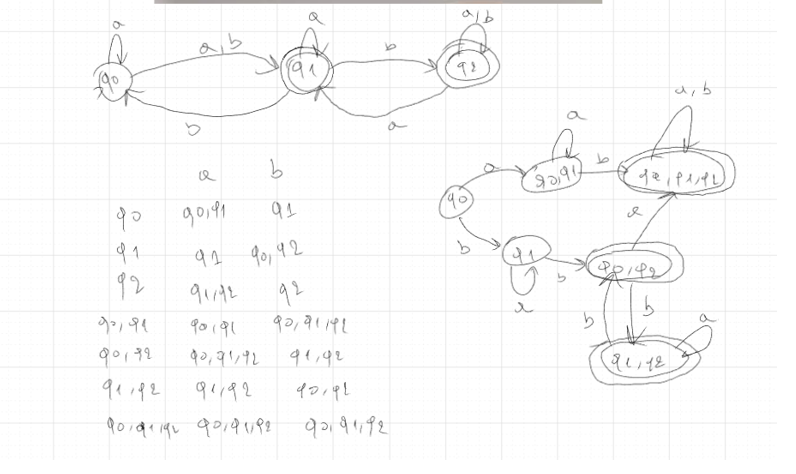 a a a,b
a,b b
q0 q1 q2
b a
a b
q0 q0,q1 q1
q1 q1 q0,q2
q2 q1,q2 q2
q0,q1 q0,q1 q0,q1,q2
q0,q2 q0,q1,q2 q1,q2
q1,q2 q1,q2 q0,q2
q0,q1,q2 q0,q1,q2 q0,q1,q2
a,b
a
a b
q0,q1 q0,q1,q2
q0
a
b q1 b q0,q2
a
b b
a
q1,q2